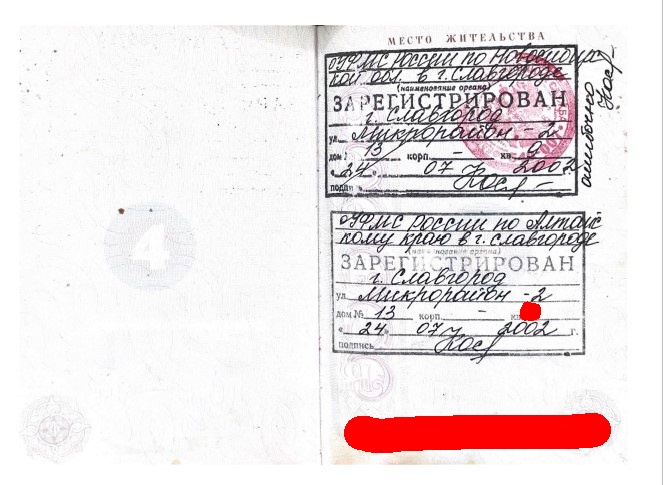 МЕСТО ЖИТЕЛЬСТВА
УФМС России по Новосибир-
кой обл. в г. Славгороде
(наименование органа)
ЗАРЕГИСТРИРОВАН
г. Славгород
ул. Микрорайон - 2
дом № 13 корп. - кв. 9
«24» 07 2002
подпись
ошибочно
УФМС России по Алтайс
кому краю в г. Славгороде
(наименование органа)
ЗАРЕГИСТРИРОВАН
г. Славгород
ул. Микрорайон - 2
дом № 13 корп. - кв
«24» 07 2002 г.
подпись
4